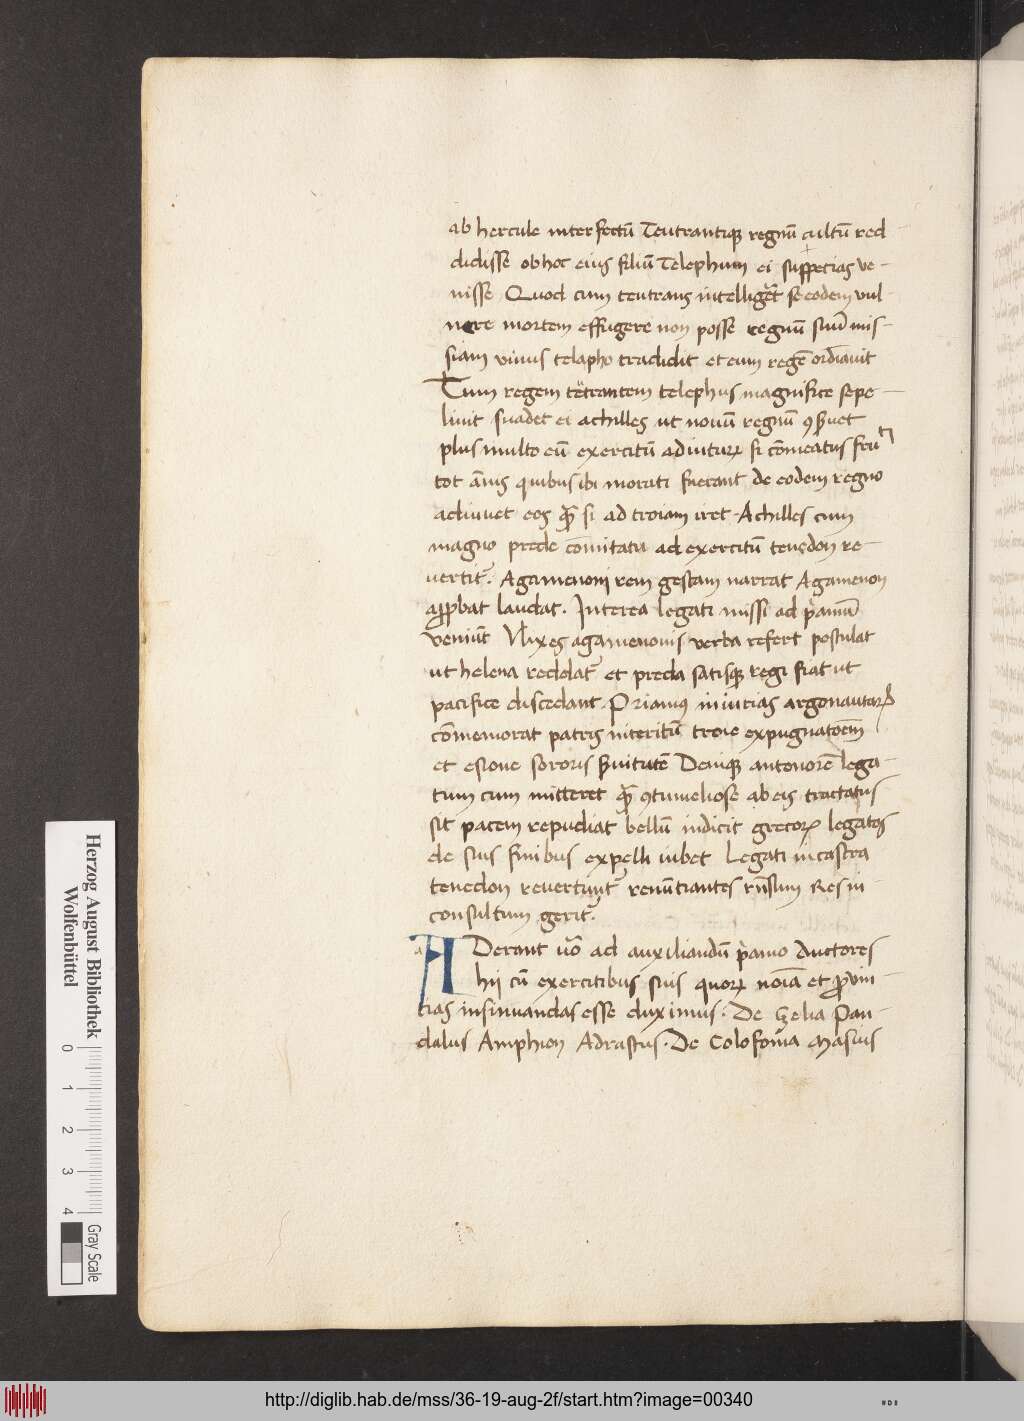 ab hercule interfectū Teutrantiqꝫ regnū cultū red
didisse ob hoc eius filiū Telephum ei suppetias ve-
nisse Quod cum teutrans intelligēt se eodem vul-
nere mortem effugere non posse regnū suū mis-
siam vivus telapho tradidit et eum regē ordīavit
Tum regem tētrantem telephus magnifice sepe-
livit suadet ei achilles ut novū regnū ꝯs̄vet
plus multo eū exercitū adiuturꝝ si cōmeatus fcū
tot ānis quibus ibi morati fuerant de eodem regno
adiuvet eos qꝫ̄ si ad troiam iret. Achilles cum
magno prede cōmitatu ad exercitū tenedon re-
vertit᷑. Agamenoni rem gestam narrat Agamenon
aꝓbat laudat. Interea legati missi ad pͥamū
veniūt Vlixes agamenonis verba refert postulat
ut helena reddat᷑ et preda satisqꝫ regi fiat ut
pacifice discedant. Priamꝰ iniurias argonautarꝝ
cōmemorat patris interitū troie expugnatōem
et esione sororis s̄vitutē Deniqꝫ antenorē lega-
tum cum mitteret qꝫ̄ ꝯtumeliose ab eis tractatus
sit pacem repudiat bellū indicit grecorꝝ legatos
de suis finibus expelli iubet Legati in castra
tenedon revertunt᷑ renūtiantes rn̄sum Res in
consultum gerit᷑.
a
ADerant ūo ad auxiliandū pͥamo Ductores
hij cū exercitibus suis quorꝝ noīa et ꝓvin-
cias insinuandas esse duximus. De Zelia Pan-
dalus Amphion Adrastus. De Colofonia Masius
Herzog August Bibliothek
Wolfenbüttel
0 1 2 3 4
Gray Scale
http://diglib.hab.de/mss/36-19-aug-2f/start.htm?image=00340